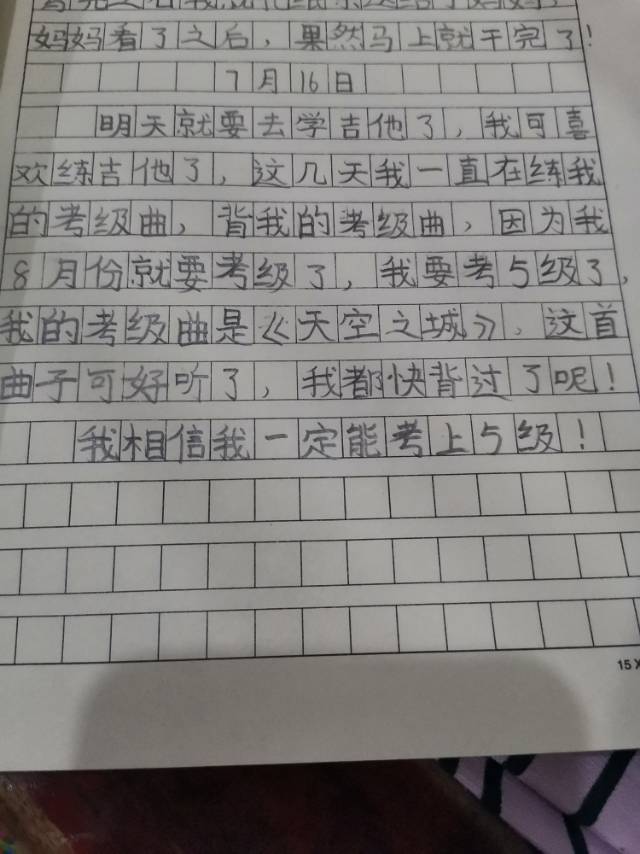 妈妈看了之后，果然马上就干完了！
7月16日
明天就要去学吉他了，我可喜
欢练吉他了，这几天我一直在练我
的考级曲，背我的考级曲，因为我
8月份就要考级了，我要考5级了，
我的考级曲是《天空之城》，这首
曲子可好听了，我都快背过了呢！
我相信我一定能考上5级！
15X